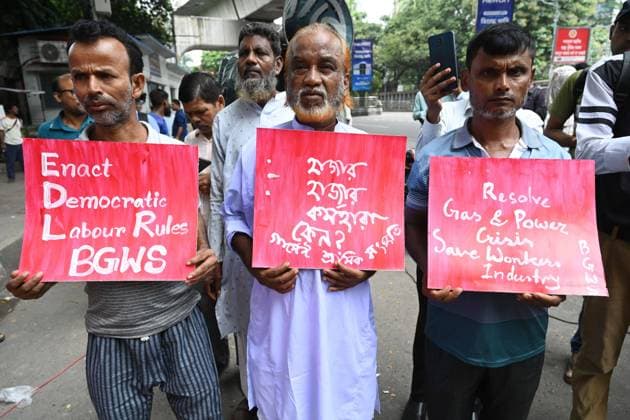 Enact
Democratic
Labour Rules
BGWS
হাজার
হাজার
কর্মহারা
কেন?
শ্রমিক
Resolve
Gas & Power
Crisis
Save Workers
Industry
BGW